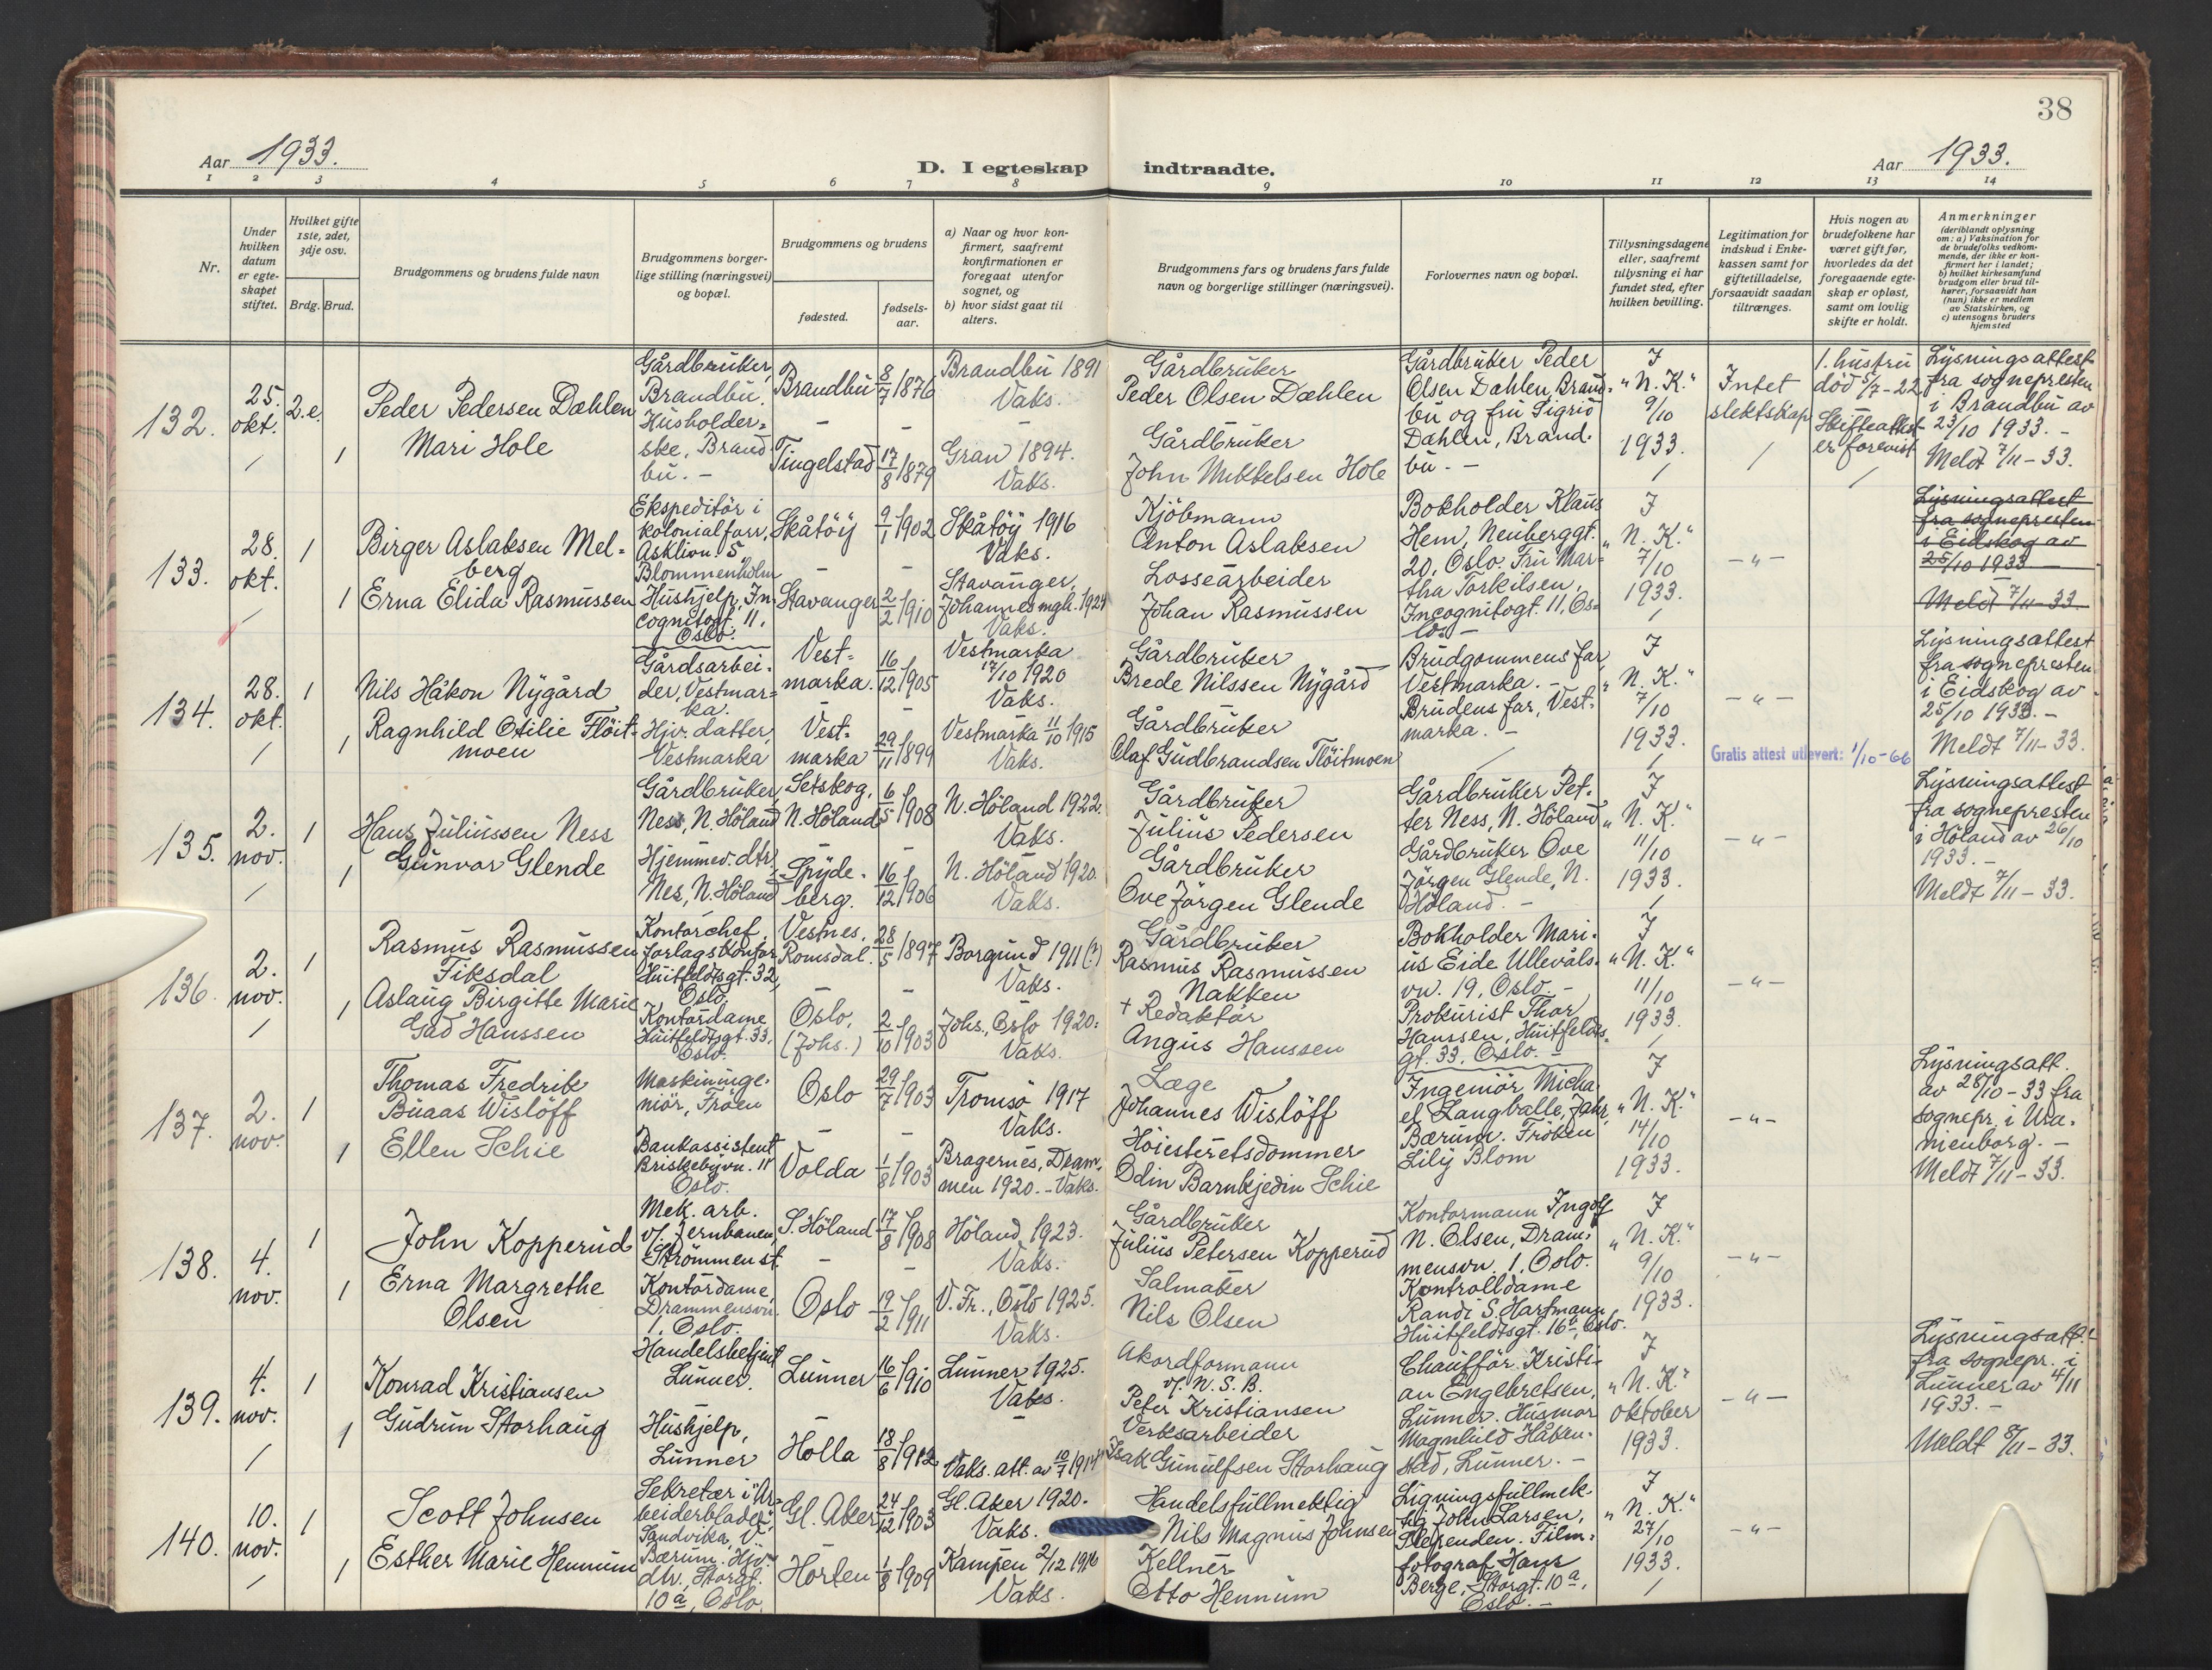 38
Aar 1933.
D. I egteskap indtraadte.
Aar 1933.
1 2 3 4 5 6 7 8 9 10 11 12 13 14
Nr.
Under hvilken datum er egteskapet stiftet.
Hvilket gifte 1ste, 2det, 3dje osv.
Brdg. Brud.
Brudgommens og brudens fulde navn
Brudgommens borgerlige stilling (næringsvei) og bopæl.
Brudgommens og brudens
fødested.
fødselsaar.
a) Naar og hvor konfirmert, saafremt konfirmationen er foregaat utenfor sognet, og
b) hvor sidst gaat til alters.
Brudgommens fars og brudens fars fulde navn og borgerlige stillinger (næringsvei).
Forlovernes navn og bopæl.
Tillysningsdagene eller, saafremt tillysning ei har fundet sted, efter hvilken bevilling.
Legitimation for indskud i Enkekassen samt for giftetilladelse, forsaavidt saadan tiltrænges.
Hvis nogen av brudefolkene har været gift før, hvorledes da det foregaaende egteskap er opløst, samt om lovlig skifte er holdt.
Anmerkninger
(deriblandt oplysning om: a) Vaksination for de brudefolks vedkommende, der ikke er konfirmert her i landet; b) hvilket kirkesamfund brudgom eller brud tilhører, forsaavidt han (hun) ikke er medlem av Statskirken, og c) utensogns bruders hjemsted
132. 25. okt. 2.e 1
Peder Pedersen Dæhlen
Mari Hole
Gårdbruker, Brandbu.
Husholderske, Brandbu. -
Brandbu 8/7 1876
Tingelstad 17/8 1879
Brandbu 1891 Vaks.
Gran 1894. Vaks.
Gårdbruker
Peder Olsen Dæhlen
Gårdbruker
John Mikkelsen Hole
Gårdbruker Peder
Olsen Dæhlen, Brand-
bu og fru Sigrid
Dæhlen, Brand-
bu. -
I "N. K." 9/10 1933.
Intet slektskap
1. hustru død 5/7-22
Skifteattest er forevist
Lysningsattest
fra sognepresten
i Brandbu av
23/10 1933. -
Meldt 7/11-33.
133. 28. okt. 1 1
Birger Aslaksen Mel=
berg
Erna Elida Rasmussen
Ekspeditör i
kolonialforr.,
5,
Blommenholm
Hushjelp, In-
cognitogt. 11,
Oslo.
Skåtöy 9/1 1902
Stavanger 2/2 1910
Skåtöy 1916 Vaks.
Stavanger,
Johannes mgh. 1924
Vaks.
Kjöbmann
Anton Aslaksen
Lossearbeider
Johan Rasmussen
Bokholder Klaus
Hem, Neuberggt.
20, Oslo. Fru Mar=
tha Torkilsen,
Incognitogt. 11, Os=
lo. -
I "N. K." 7/10 1933.
- " -
Lysningsattest
fra sognepresten
i Eidskog av
25/10 1933 -
Meldt 7/11-33.
134. 28. okt. 1 1
Nils Håkon Nygård
Ragnhild Otilie Flöit-
moen
Gårdsarbei-
der, Vestmar=
ka.
Hjv. datter,
Vestmarka
Vest=
marka. 16/12 1905
Vest=
marka 29/11 1899
Vestmarka
17/10 1920
Vaks.
Vestmarka 11/10 1915
Vaks.
Gårdbruker
Brede Nilssen Nygård
Gårdbruker
Olaf Gudbrandsen Flöitmoen
Brudgommens far,
Vestmarka. -
Brudens far, Vest-
marka. -
I "N. K." 7/10 1933.
- " -
Gratis attest utlevert: 1/10-66
Lysningsattest
fra sognepresten
i Eidskog av
25/10 1933. -
Meldt 7/11-33.
135. 2. nov. 1 1
Hans Juliussen Ness
Gunvor Glende
Gårdbruker,
Ness, N. Höland
Hjemmev. dtr.,
Nes, N. Höland
Setskog,
N. Höland 6/5 1908
Spyde-
berg. 16/12 1906
N. Höland 1922.
Vaks.
N. Höland 1920.
Vaks.
Gårdbruker
Julius Pedersen
Gårdbruker
Ove Jörgen Glende
Gårdbruker Pet-
ter Ness, N. Höland
Gårdbruker Ove
Jörgen Glende, N.
Höland. -
I "N. K." 11/10 1933.
- " -
Lysningsattest
fra sognepresten
i Höland av 26/10
1933. -
Meldt 7/11-33.
136. 2. nov. 1 1
Rasmus Rasmussen
Fiksdal
Aslaug Birgitte Marie
Gad Hanssen
Kontorchef,
Forlagskontor,
Huitfeldtsgt. 32,
Oslo.
Kontordame
Huitfeldtsgt. 33,
Oslo.
Vestnes,
Romsdal. 28/5 1897
Oslo,
(Johs.) 2/10 1903
Borgund 1911(?)
Vaks.
Johs., Oslo 1920.
Vaks.
Gårdbruker
Rasmus Rasmussen
Nakken
+ Redaktör
Angus Hanssen
Bokholder Mari-
us Eide Ullevåls-
vn. 19, Oslo. -
Prokurist Thor
Hanssen, Huitfeldts-
gt. 33. Oslo. -
I "N. K." 11/10 1933.
- " -
137. 2. nov. 1 1
Thomas Fredrik
Buaas Wislöff
Ellen Schie
Maskininge-
niör, Fröen
Bankassistent
Briskebyvn. 11
Oslo.
Oslo 29/7 1903
Volda 1/8 1903
Tromsö 1917
Vaks.
Bragernes, Dram-
men 1920. - Vaks.
Læge
Johannes Wislöff
Höiesteretsdommer
Odin Barnkjedin Schie
Ingeniör Micha-
el Langballe, Jahr,
Bærum. Fröken
Lily Blom
I "N. K." 14/10 1933.
- " -
Lysningsatt.
av 28/10-33 fra
sognepr. i Ura-
nienborg. -
Meldt 7/11-33.
138. 4. nov. 1 1
John Kopperud
Erna Margrethe
Olsen
Mek. arb.
v/ Jernbanen,
Strömmen st.
Kontordame,
Drammensvn.
1, Oslo.
S. Höland 17/8 1908
Oslo 19/2 1911
Höland 1923.
Vaks.
V. Fr., Oslo 1925.
Vaks.
Gårdbruker
Julius Petersen Kopperud
Salmaker
Nils Olsen
Kontormann Ingolf
N. Olsen, Dram-
mensvn. 1, Oslo.
Kontrolldame
Randi S. Hartmann,
Huitfeldtsgt. 16, Oslo.
I "N. K." 9/10 1933.
- " -
139. 4. nov. 1 1
Konrad Kristiansen
Gudrun Storhaug
Handelsbetjent
Lunner.
Hushjelp,
Lunner
Lunner 16/6 1910
Holla 18/8 1912
Lunner 1925.
Vaks.
Vaks. att. av 10/7 1914
Akordformann
v/ N. S. B.
Peter Kristiansen
Verksarbeider
Isak Gunulfsen Storhaug
Chaufför Kristi-
an Engebretsen,
Lunner. Husmor
Magnhild Håken-
stad, Lunner. -
I "N. K." oktober 1933.
- " -
Lysningsatt.
fra sognepr. i
Lunner av 4/11
1933. -
Meldt 8/11-33.
140. 10. nov. 1 1
Scott Johnsen
Esther Marie Hennum
Sekretær i "Ar-
beiderbladet",
Sandvika, V.
Bærum. Hjv.
dtr., Storgt.
10a, Oslo.
Gl. Aker 24/12 1903
Horten 1/8 1909
Gl. Aker 1920.
Vaks.
Kampen 2/12 1916
Vaks.
Handelsfullmektig
Nils Magnus Johnsen
Kellner
Otto Hennum
Ligningsfullmek-
tig John Larsen,
Slependen. Film-
fotograf Hans
Berge, Storgt. 10a,
Oslo. -
I "N. K." 27/10 1933.
- " -